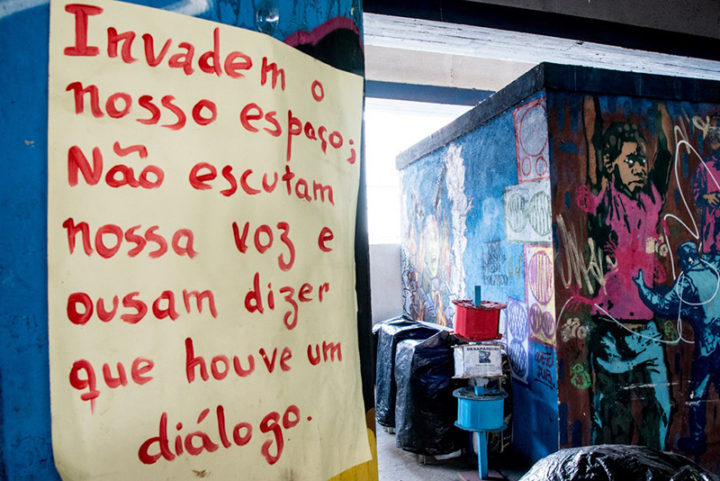 Invadem o
nosso espaço;
Não escutam
nossa voz e
ousam dizer
que houve um
diálogo.